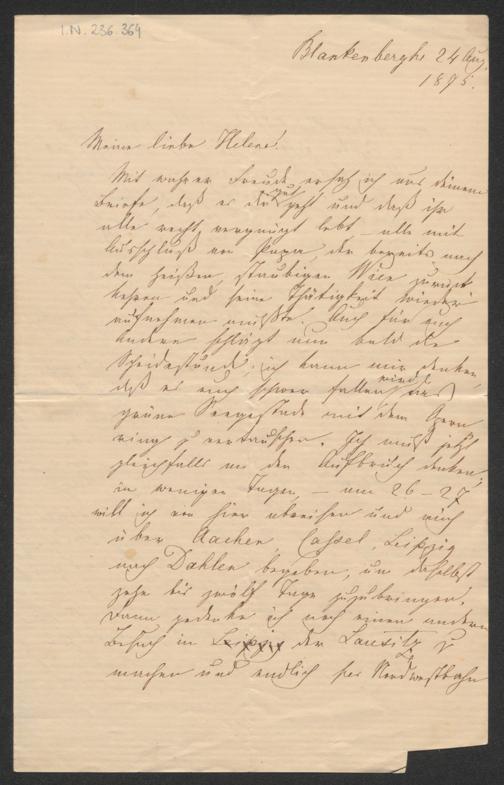 I.N. 236.364
Blankenberghe 24 Aug.
1895.
Meine liebe Helene!
Mit wahrer Freude ersah ich aus deinem
Briefe, daß es dir gut geht und daß ihr
alle recht vergnügt lebt – alle mit
Ausschluß von Papa, der bereits nach
dem heißen, staubigen Wien zurück
kehren und seine Thätigkeit wieder
aufnehmen mußte. Auch für euch
andere schlägt nun bald die
Scheidestunde; ich kann mir denken,
daß es euch schwer fallen wird das
grüne Seegestade mit dem
zu vertauschen. Ich muß jetzt
gleichfalls an den Aufbruch denken,
in wenigen Tagen, – am 26–27
will ich von hier abreisen und mich
über Aachen Cassel, Leipzig
nach Dahlen begeben, um daselbst
zehn bis zwölf Tage zuzubringen.
Dann gedenke ich noch einen andern
Besuch in Leipzig der Lausitz zu
machen und endlich per Nordwestbahn